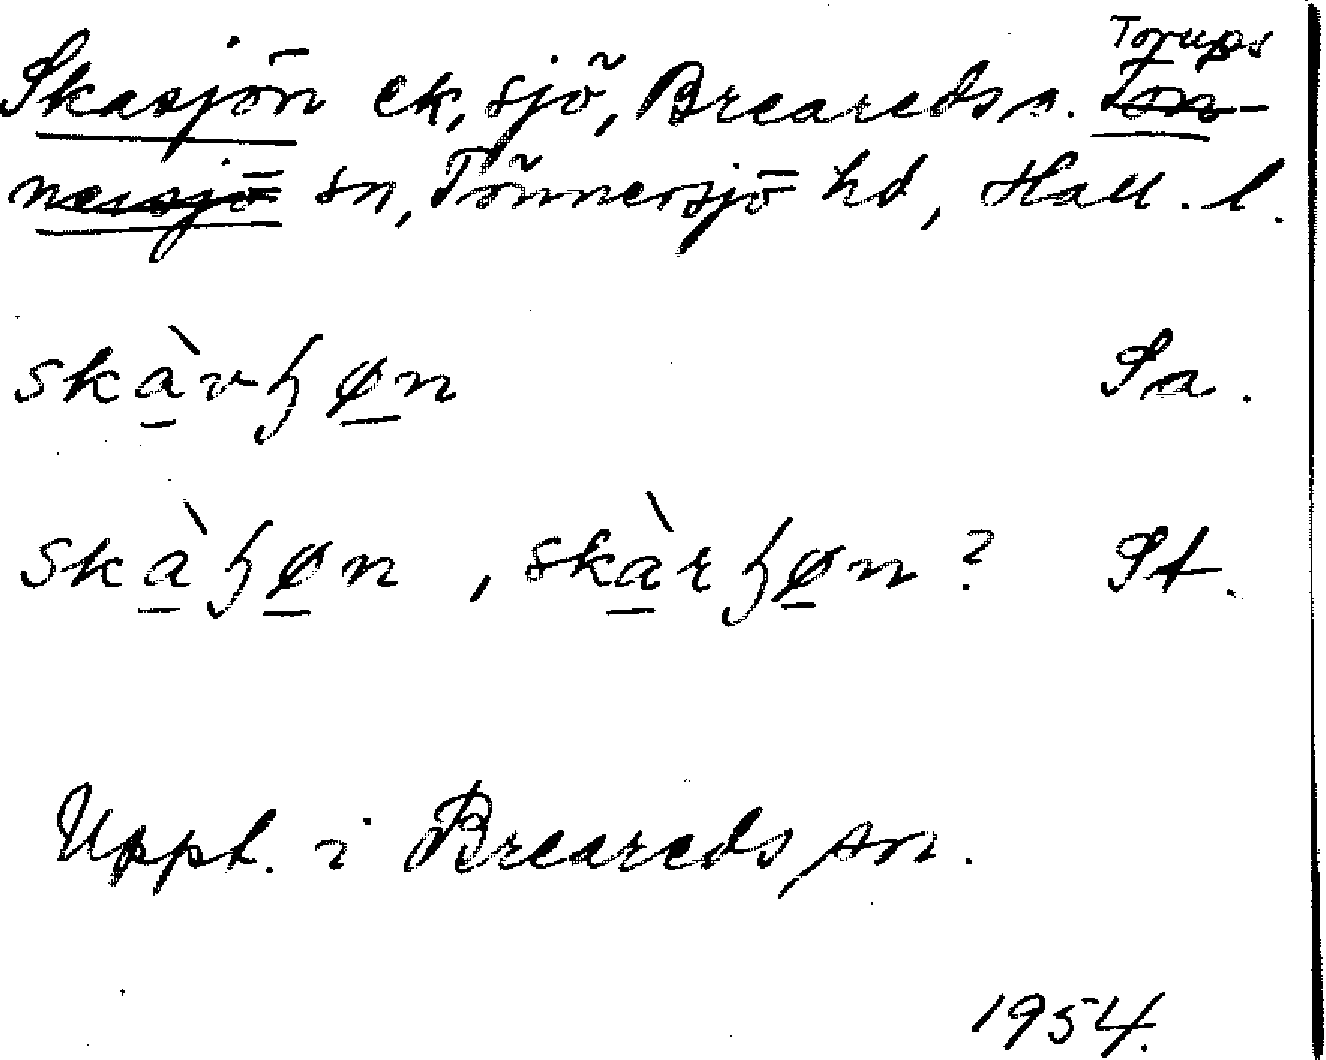 Torups
Skasjön ek, sjö, Breareds s. Tön-
nersjö sn, Tönnersjö hd, Hall. l.
skàvɧøn Sa.
skàɧøn, skàrɧøn? St.
Uppt. i Breareds sn.
1954.